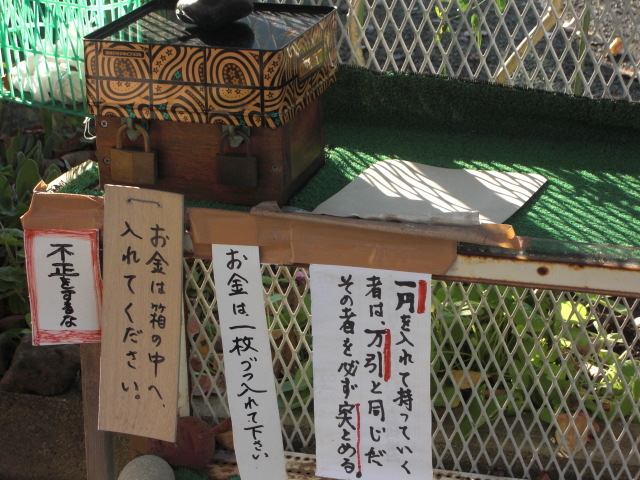 不正をするな
お金は箱の中へ
入れてください。
お金は一枚づつ入れて下さい
一円を入れて持っていく
者は万引と同じだ
その者を必ず実とめる